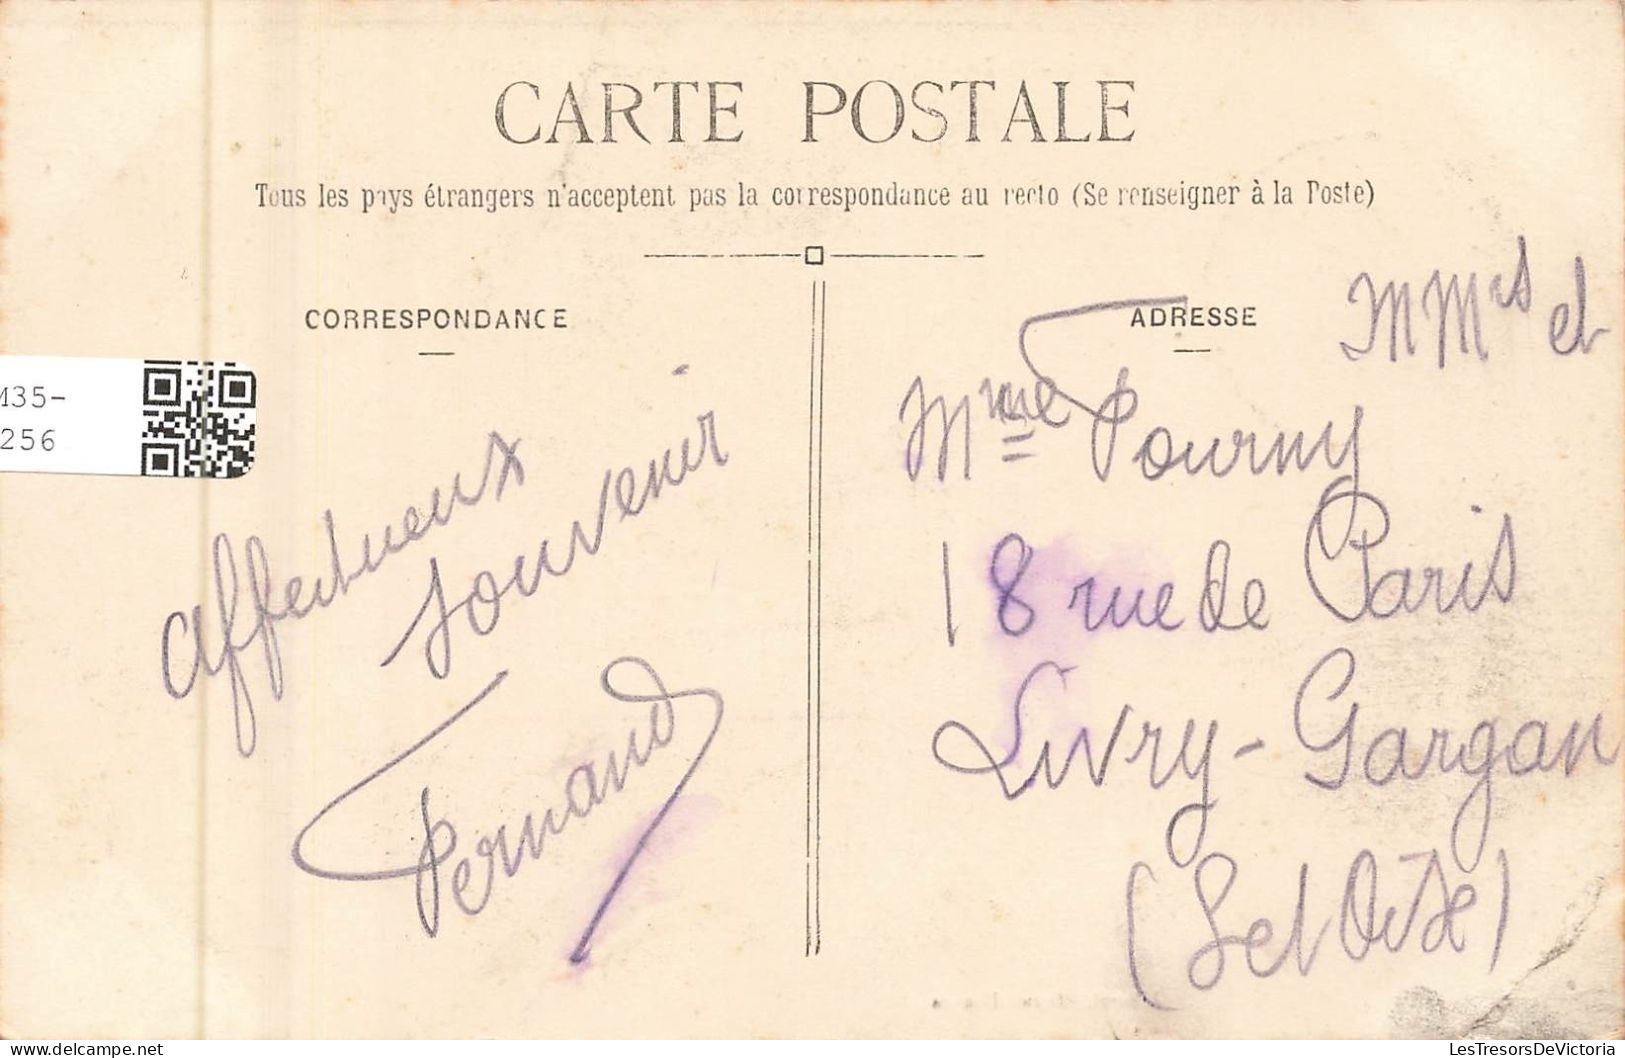 CARTE POSTALE
Tous les pays étrangers n'acceptent pas la correspondance au recto (Se renseigner à la Poste)
CORRESPONDANCE
Affectueux
souvenir
Fernand
M35-
256
ADRESSE
MMrs et
Mme Fourny
18 rue de Paris
Livry-Gargan
(S et Oise)
LesTresorsDeVictoria